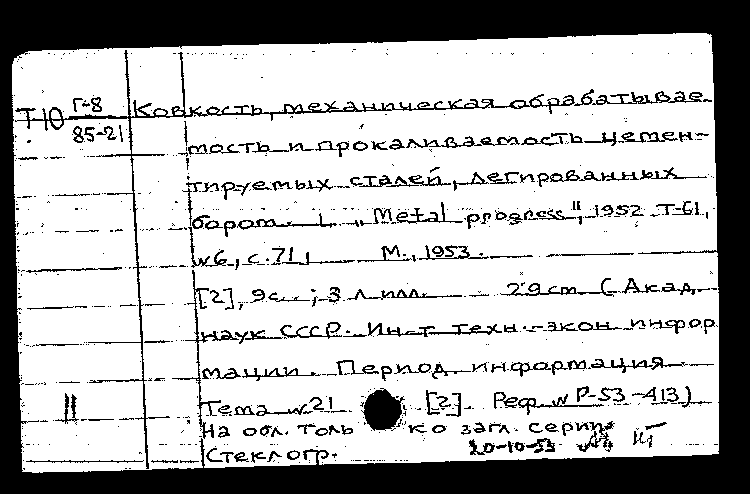 Т-10 Г-8 Ковкость, механическая обрабатывае-
85-21
мость и прокаливаемость цемен-
тируемых сталей, легированных
бором. „Metal progress", 1952 Т-61,
№6, с.71, М., 1953.
[2], 9с. ; 3 л илл. 29 см (Акад.
наук СССР. Ин-т техн.-экон. инфор
мации. Период. информация
Тема №21 [2]. Реф. № Р-53-413)
II
На обл. только загл. серии
Стеклогр. 20-10-53